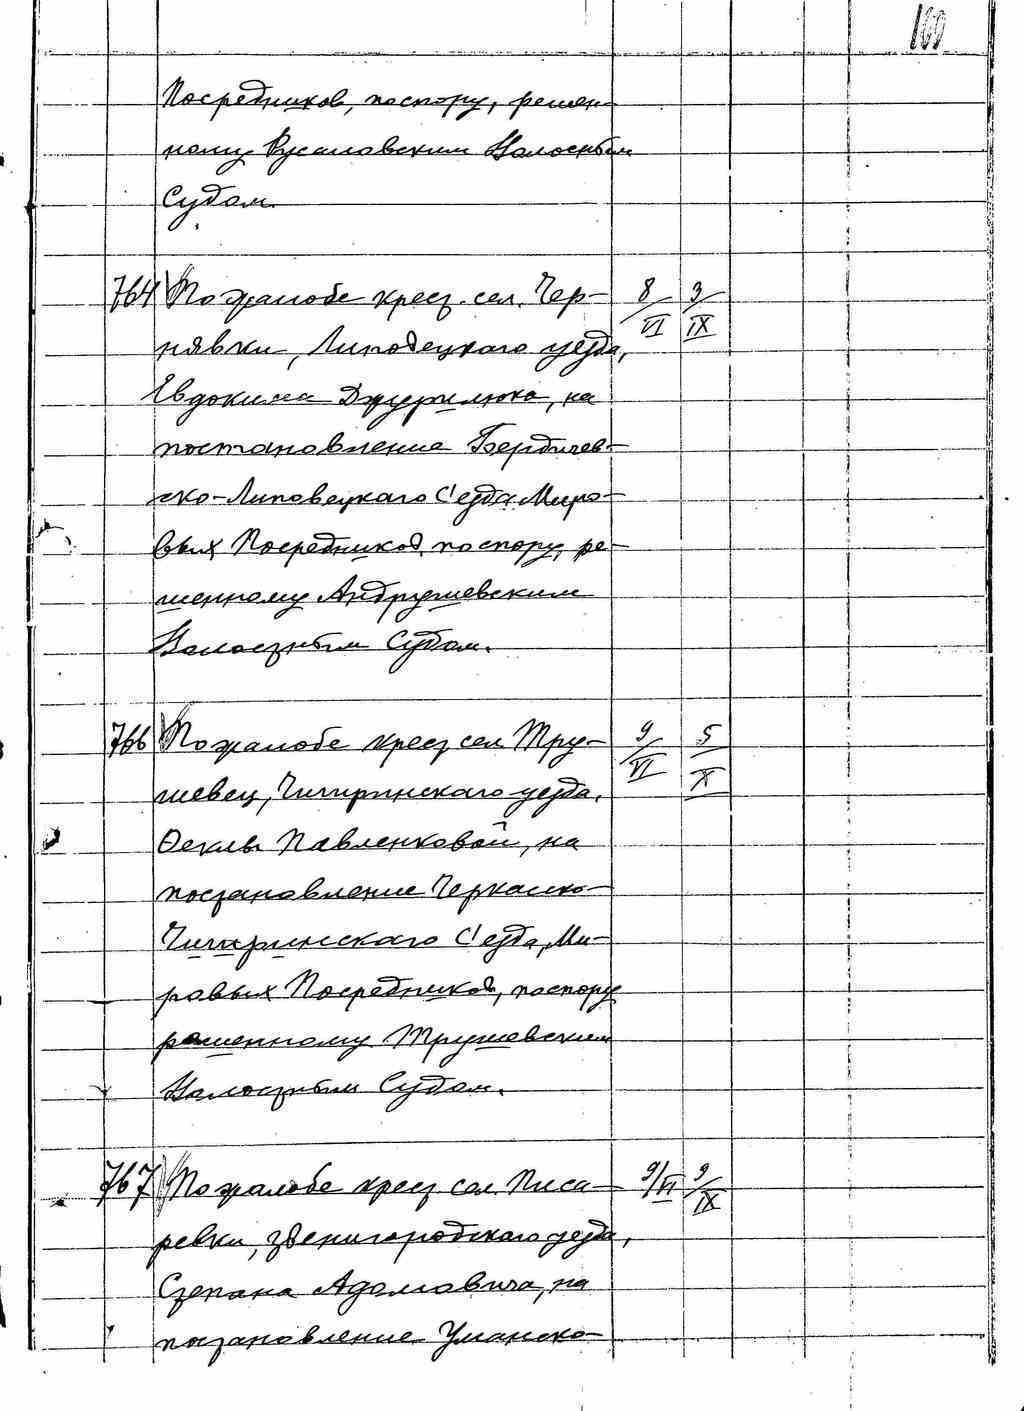 100
Посредников, по спору, решен-
ному Русаловским Волостным
Судом.
764 По жалобе крест. сел. Чер- 8/VI 3/IX
нявки, Липовецкого уезда,
Евдокима Джурилюка, на
постановление Бердичев-
ско-Липовецкаго С'езда Миро-
вых Посредников, по спору, ре-
шенному Андрушевским
Волостным Судом.
766 По жалобе крест. сел. Тру- 9/VI 5/X
шевец, Чигиринскаго уезда,
Феклы Павленковой, на
постановление Черкасско-
Чигиринскаго С'езда, Ми-
ровых Посредников, по спору
решенному Трушевским
Волостным Судом.
767 По жалобе крест. сел. Писа- 9/VI 9/IX
ревки, Звенигородскаго уезда,
Степана Адамовича, на
постановление Уманско-